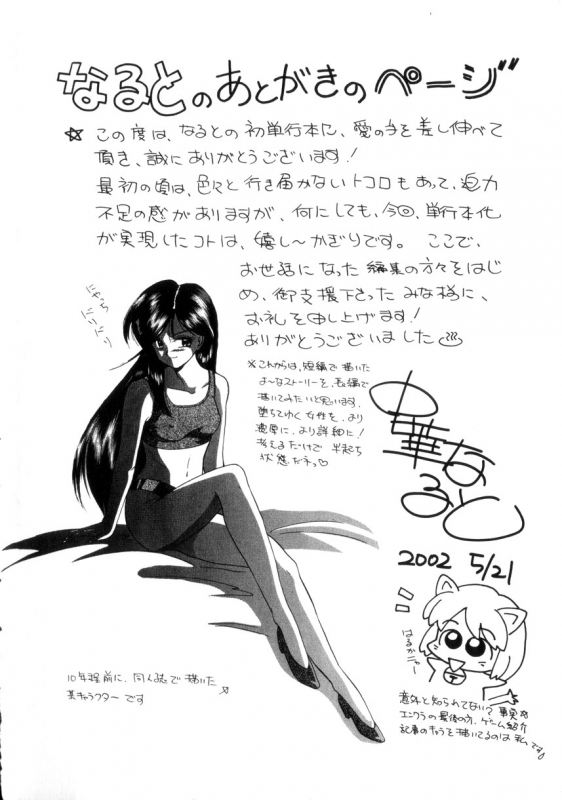 なるとのあとがきのページ
☆ この度は、なるとの初単行本に、愛の手を差し伸べて
頂き、誠にありがとうございます！
最初の頃は、色々と行き届かないトコロもあって、迫力
不足の感がありますが、何にしても、今回、単行本化
が実現したコトは、嬉し〜かぎりです。 ここで、
お世話になった編集の方々をはじ
め、御支援下さったみな様に、
お礼を申し上げます！
ありがとうございました
※これからは、短編で描いた
よ〜なストーリーを、長編で
描いてみたいと思います。
堕ちてゆく女性を、より
濃厚に、より詳細に！
考えるだけで 半起ち
状態だネっ♡
華なると
2002 5/21
はるかニャー
意外と知られてない？事実☆
エンクラの最後の方、ゲーム紹介
記事のキャラを描いてるのは私です♪
10年程前に、同人誌で描いた
某キャラクターです